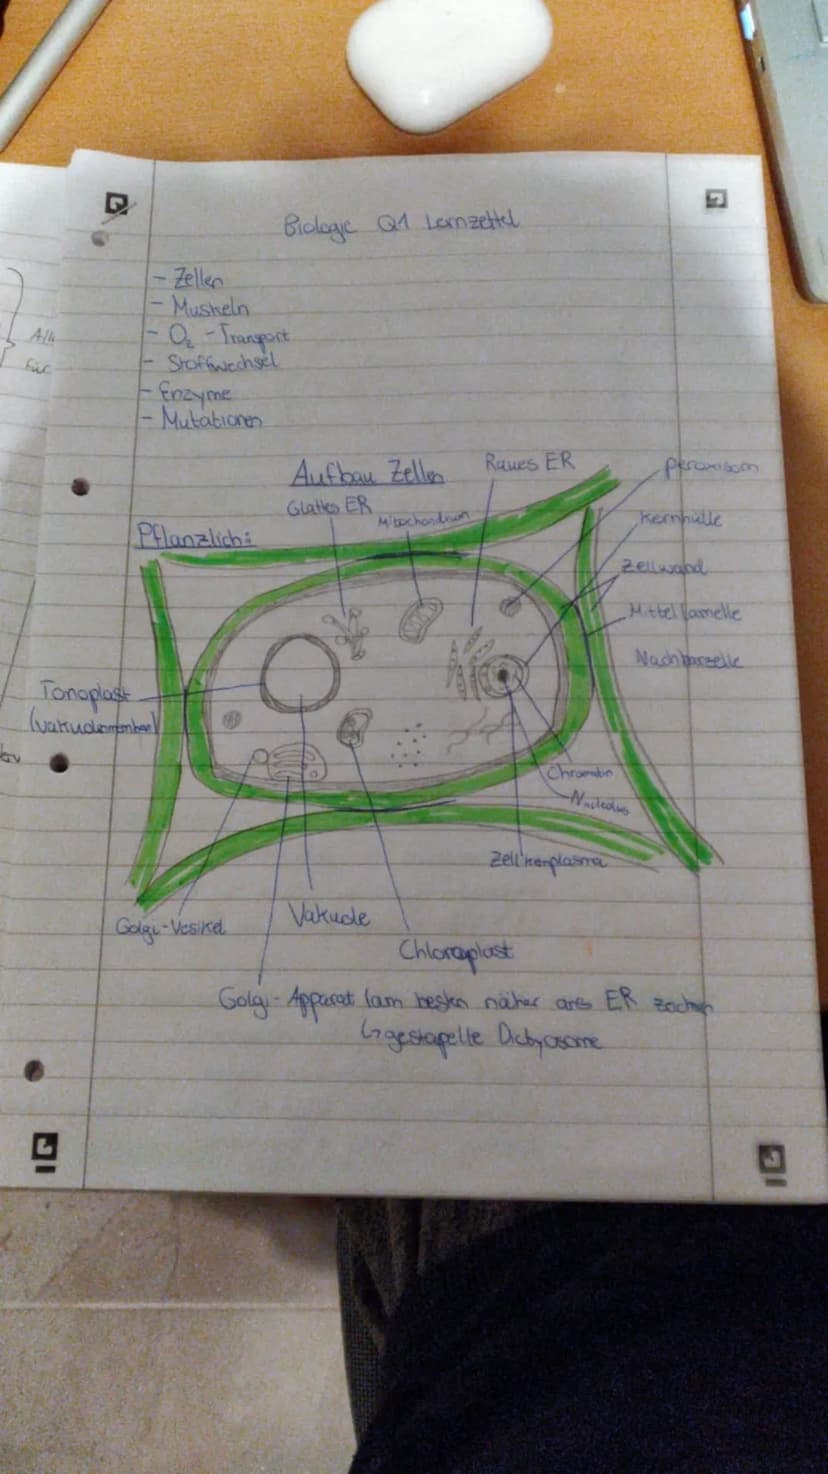 Biologie Q1 Lernzettel
- Zellen
- Muskeln
- O₂ - Transport
- Stoffwechsel
- Enzyme
- Mutationen
Aufbau Zellen
Raues ER
Peroxisom
Glattes ER
Mitochondrium
Kernhülle
Pflanzlich:
Zellwand
Mittellamelle
Nachbarzelle
Tonoplast
(Vakuolenmembran)
Chromatin
Nucleolus
Zellkernplasma
Golgi-Vesikel
Vakuole
Chloroplast
Golgi-Apparat (am besten näher ans ER zeichen
↳ gestapelte Dictyosome